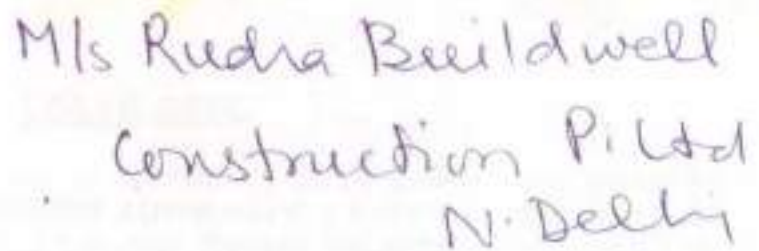 M/s Rudra Buildwell
Construction P. Ltd
N. Delhi